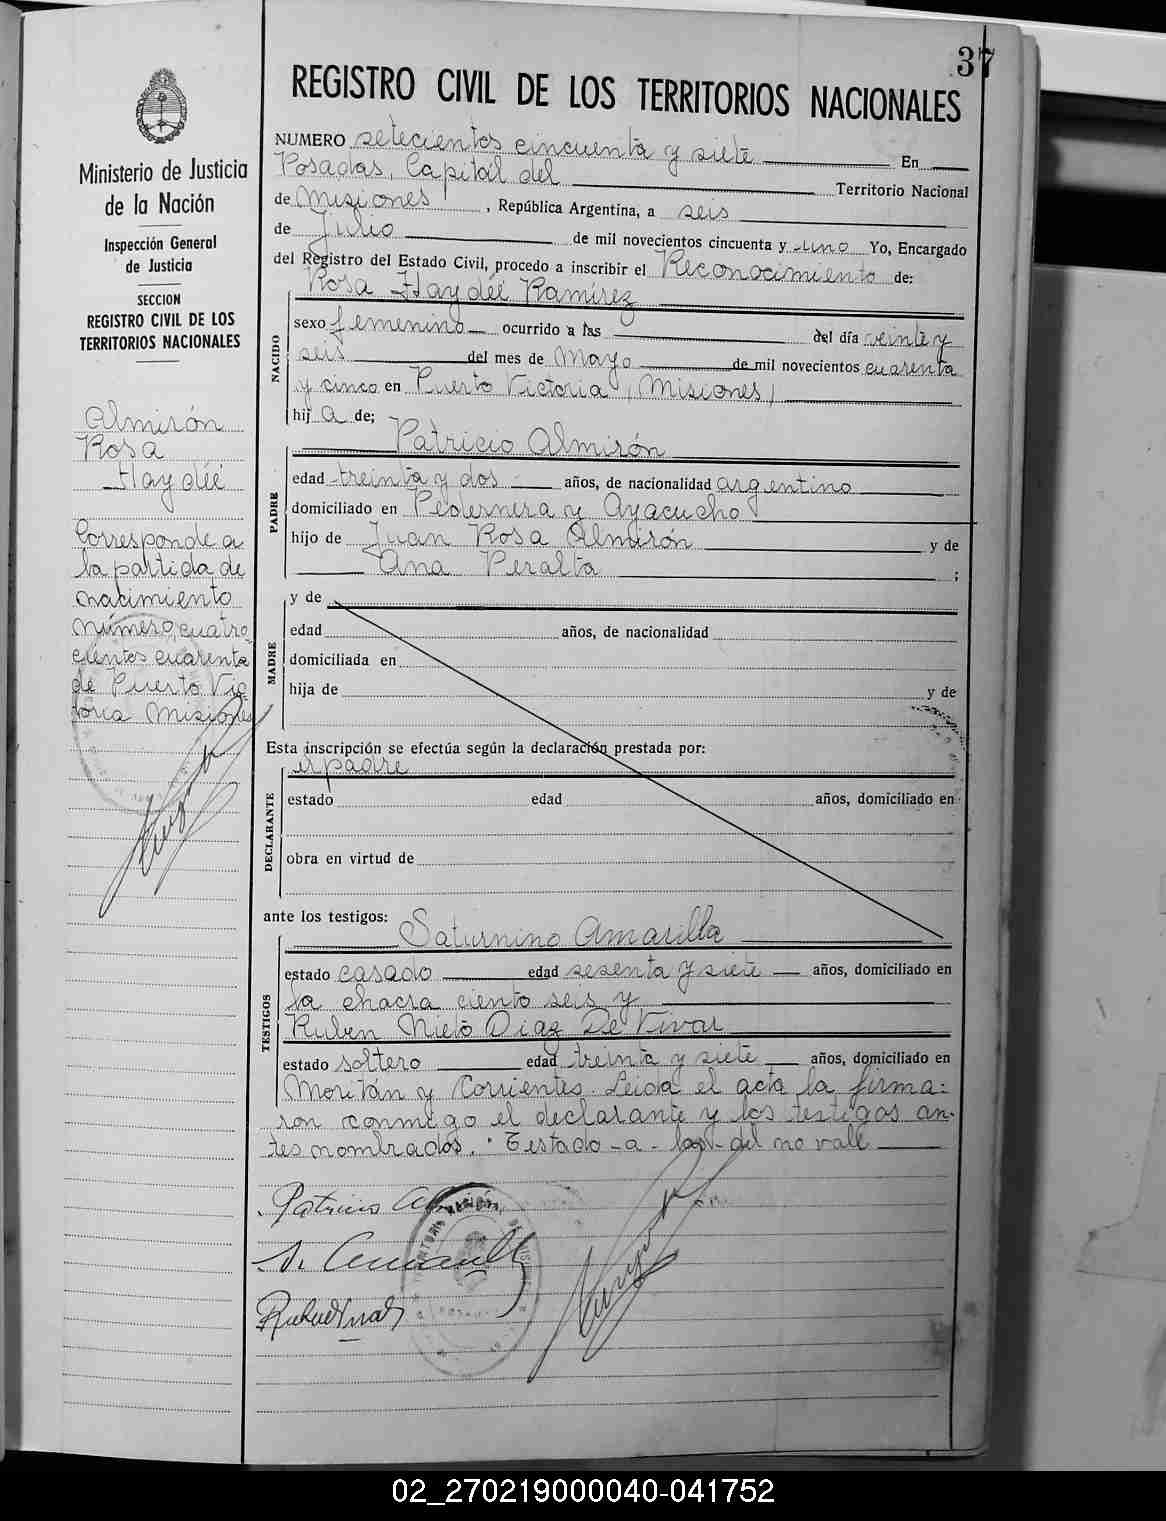 37
REGISTRO CIVIL DE LOS TERRITORIOS NACIONALES
Ministerio de Justicia
de la Nación
Inspección General
de Justicia
SECCION
REGISTRO CIVIL DE LOS
TERRITORIOS NACIONALES
Almirón
Rosa
Haydéé
Corresponde a
la partida de
nacimiento
número cuatro
cientos cuarenta
de Puerto Vic
toria Misiones
NUMERO setecientos cincuenta y siete En
Posadas, Capital del Territorio Nacional
de Misiones , República Argentina, a seis
de Julio de mil novecientos cincuenta y uno Yo, Encargado
del Registro del Estado Civil, procedo a inscribir el Reconocimiento de:
Rosa Haydéé Ramírez
NACIDO
sexo femenino ocurrido a las del día veinte y
seis del mes de Mayo de mil novecientos cuarenta
y cinco en Puerto Victoria (Misiones)
hij a de;
Patricio Almirón
PADRE
edad treinta y dos años, de nacionalidad argentino
domiciliado en Pedernera y Ayacucho
hijo de Juan Rosa Almirón y de
Ana Peralta ;
MADRE
y de
edad años, de nacionalidad
domiciliada en
hija de y de
Esta inscripción se efectúa según la declaración prestada por:
el padre
DECLARANTE
estado edad años, domiciliado en
obra en virtud de
ante los testigos:
Saturnino Amarilla
TESTIGOS
estado casado edad sesenta y siete años, domiciliado en
la chacra ciento seis y
Ruben Nieto Diaz De Vivar
estado soltero edad treinta y siete años, domiciliado en
Moritán y Corrientes. Leida el acta la firma=
ron conmigo el declarante y los testigos an-
tes nombrados. Testado -a- las- del no vale
Patricio
S. Amarilla
02_270219000040-041752